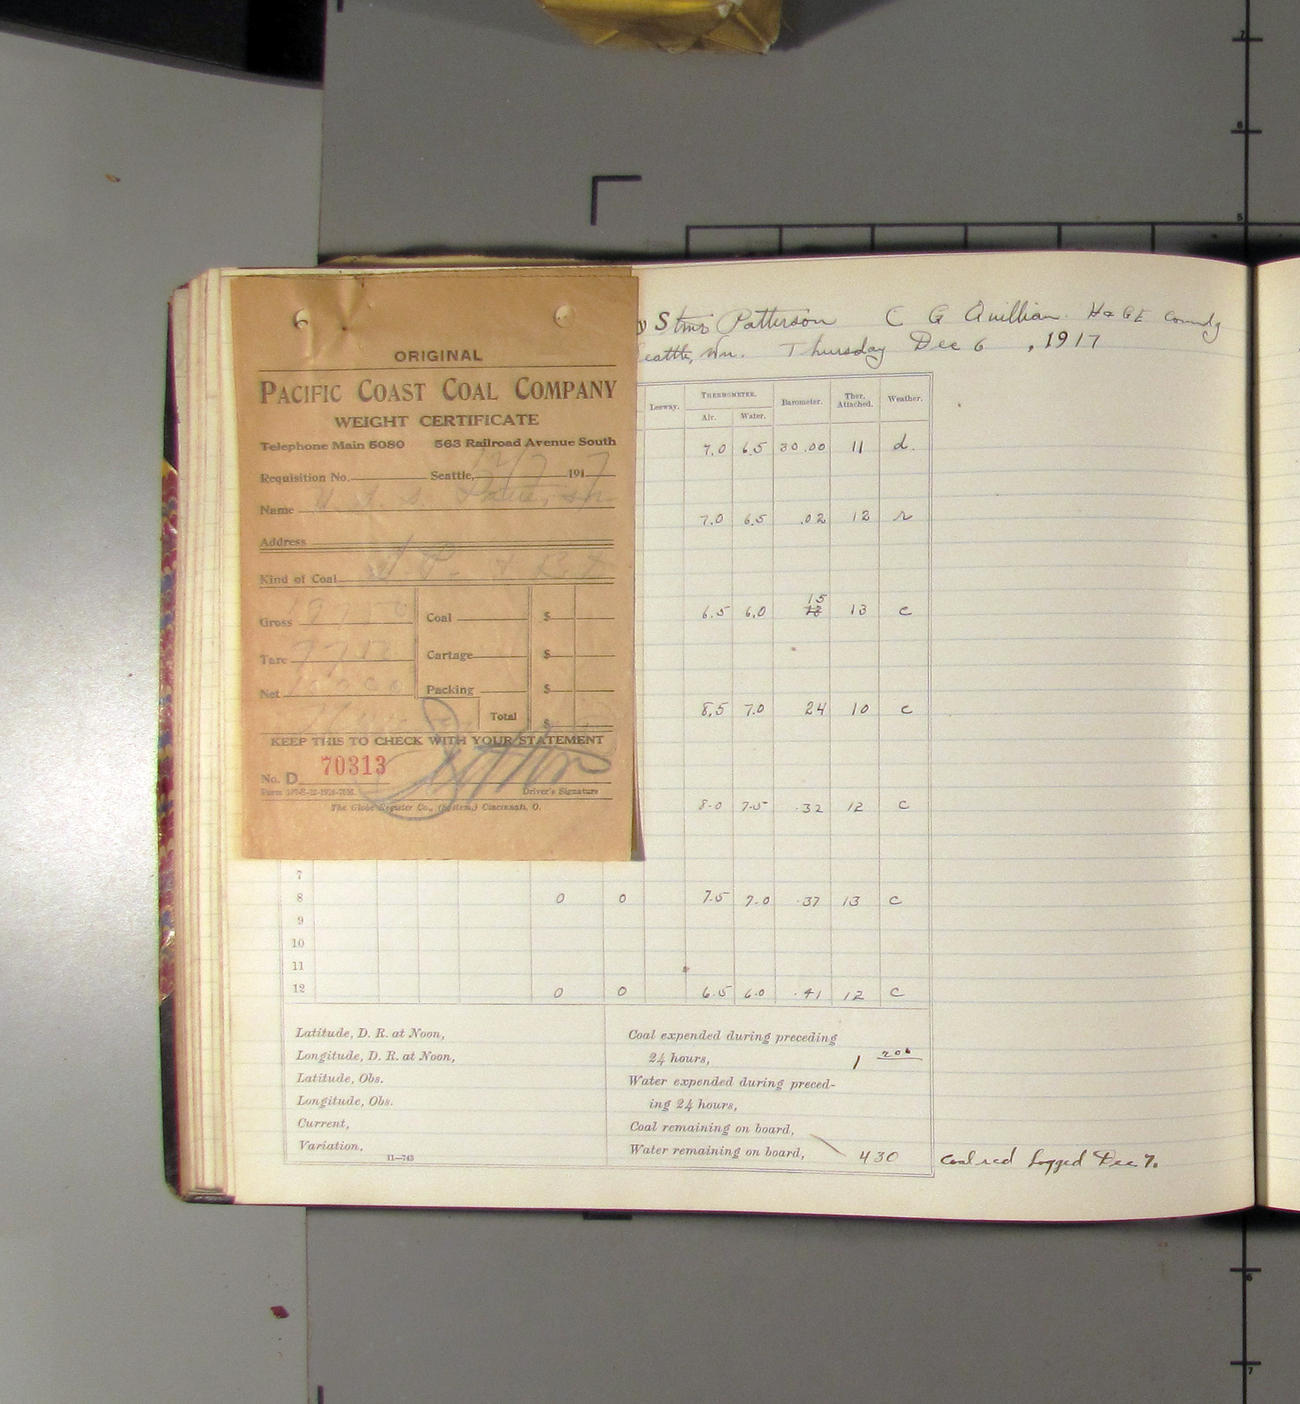 ORIGINAL
PACIFIC COAST COAL COMPANY
WEIGHT CERTIFICATE
Telephone Main 5080 563 Railroad Avenue South
Requisition No. Seattle, 12/7 1917
Name U. S. S.
Address
Kind of Coal
Gross 19750 Coal $
Tare Cartage $
Net Packing $
Total $
KEEP THIS TO CHECK WITH YOUR STATEMENT
No. D 70313
Driver's Signature
The Globe Register Co., (System) Cincinnati, O.
y Stmr Patterson C G Quillian. H & GE Comndg
eattle, Wn. Thursday Dec 6, 1917
Leeway. THERMOMETER. Barometer. Ther. Attached. Weather.
Air. Water.
7.0 6.5 30.00 11 d.
7.0 6.5 .02 12 r
15
6.5 6.0 13 c
8.5 7.0 24 10 c
8.0 7.5 .32 12 c
7
8 0 0 7.5 7.0 .37 13 c
9
10
11
12 0 0 6.5 6.0 .41 12 c
Latitude, D. R. at Noon,
Longitude, D. R. at Noon,
Latitude, Obs.
Longitude, Obs.
Current,
Variation,
11—743
Coal expended during preceding
24 hours, 1 206
Water expended during preced-
ing 24 hours,
Coal remaining on board,
Water remaining on board, 430
Coal recd logged Dec 7.
7
6
5
6
7